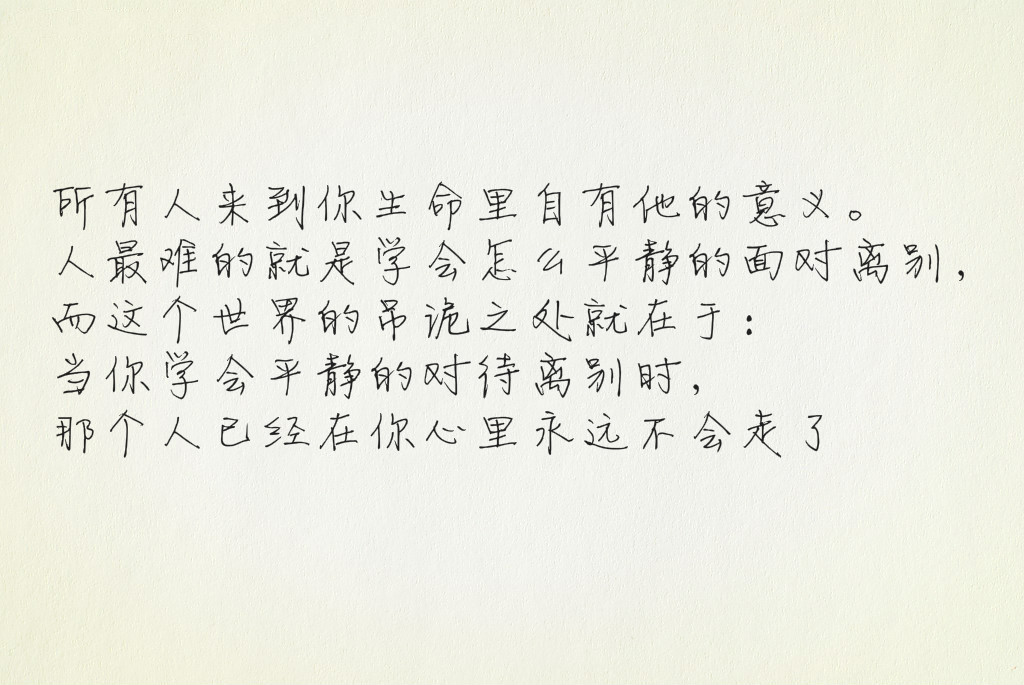 所有人来到你生命里自有他的意义。
人最难的就是学会怎么平静的面对离别，
而这个世界的吊诡之处就在于：
当你学会平静的对待离别时，
那个人已经在你心里永远不会走了